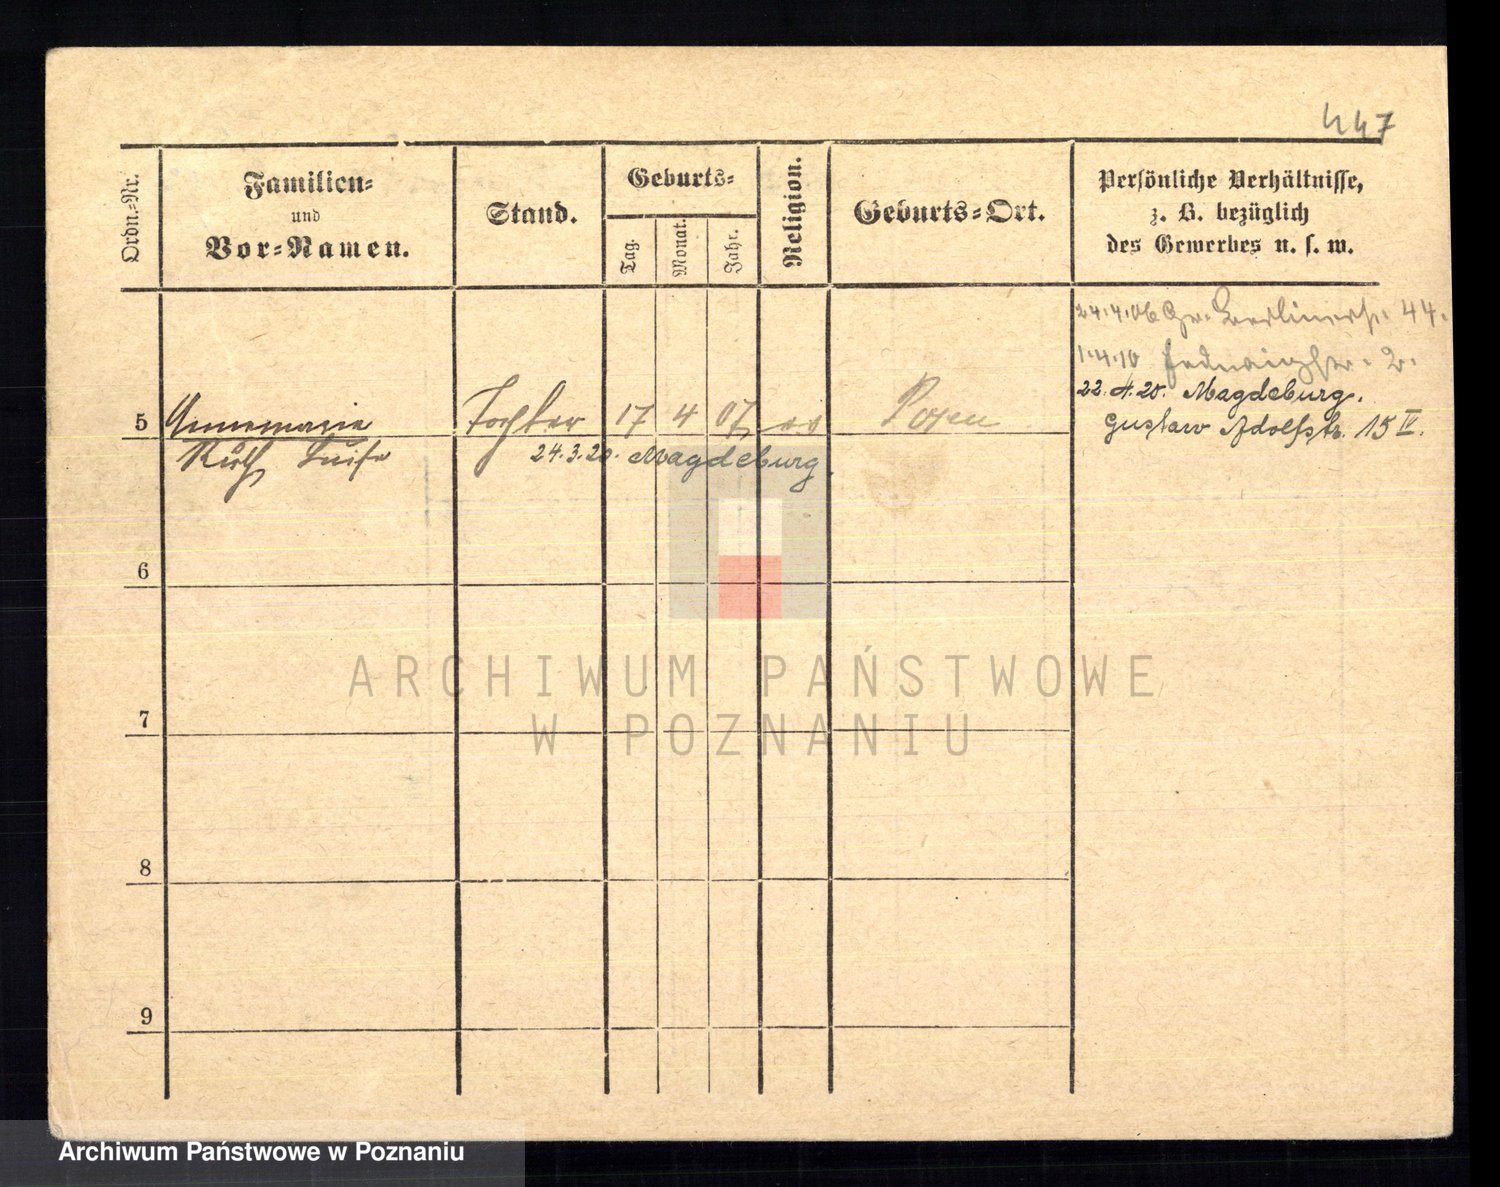 447
Ordn.-Nr.
Familien-
und
Vor-Namen.
Stand.
Geburts-
Tag.
Monat.
Jahr.
Religion.
Geburts-Ort.
Persönliche Verhältnisse,
z. B. bezüglich
des Gewerbes u. s. w.
24.4.06 Gr. Berlinerstr. 44.
1.4.10 2.
22.4.20. Magdeburg.
Gustaw Adolfstr. 15 IV.
5 Annemarie Tochter 17 4 07 Posen
Ruth Luise 24.3.20. Magdeburg.
6
7
8
9
ARCHIWUM PAŃSTWOWE
W POZNANIU
Archiwum Państwowe w Poznaniu